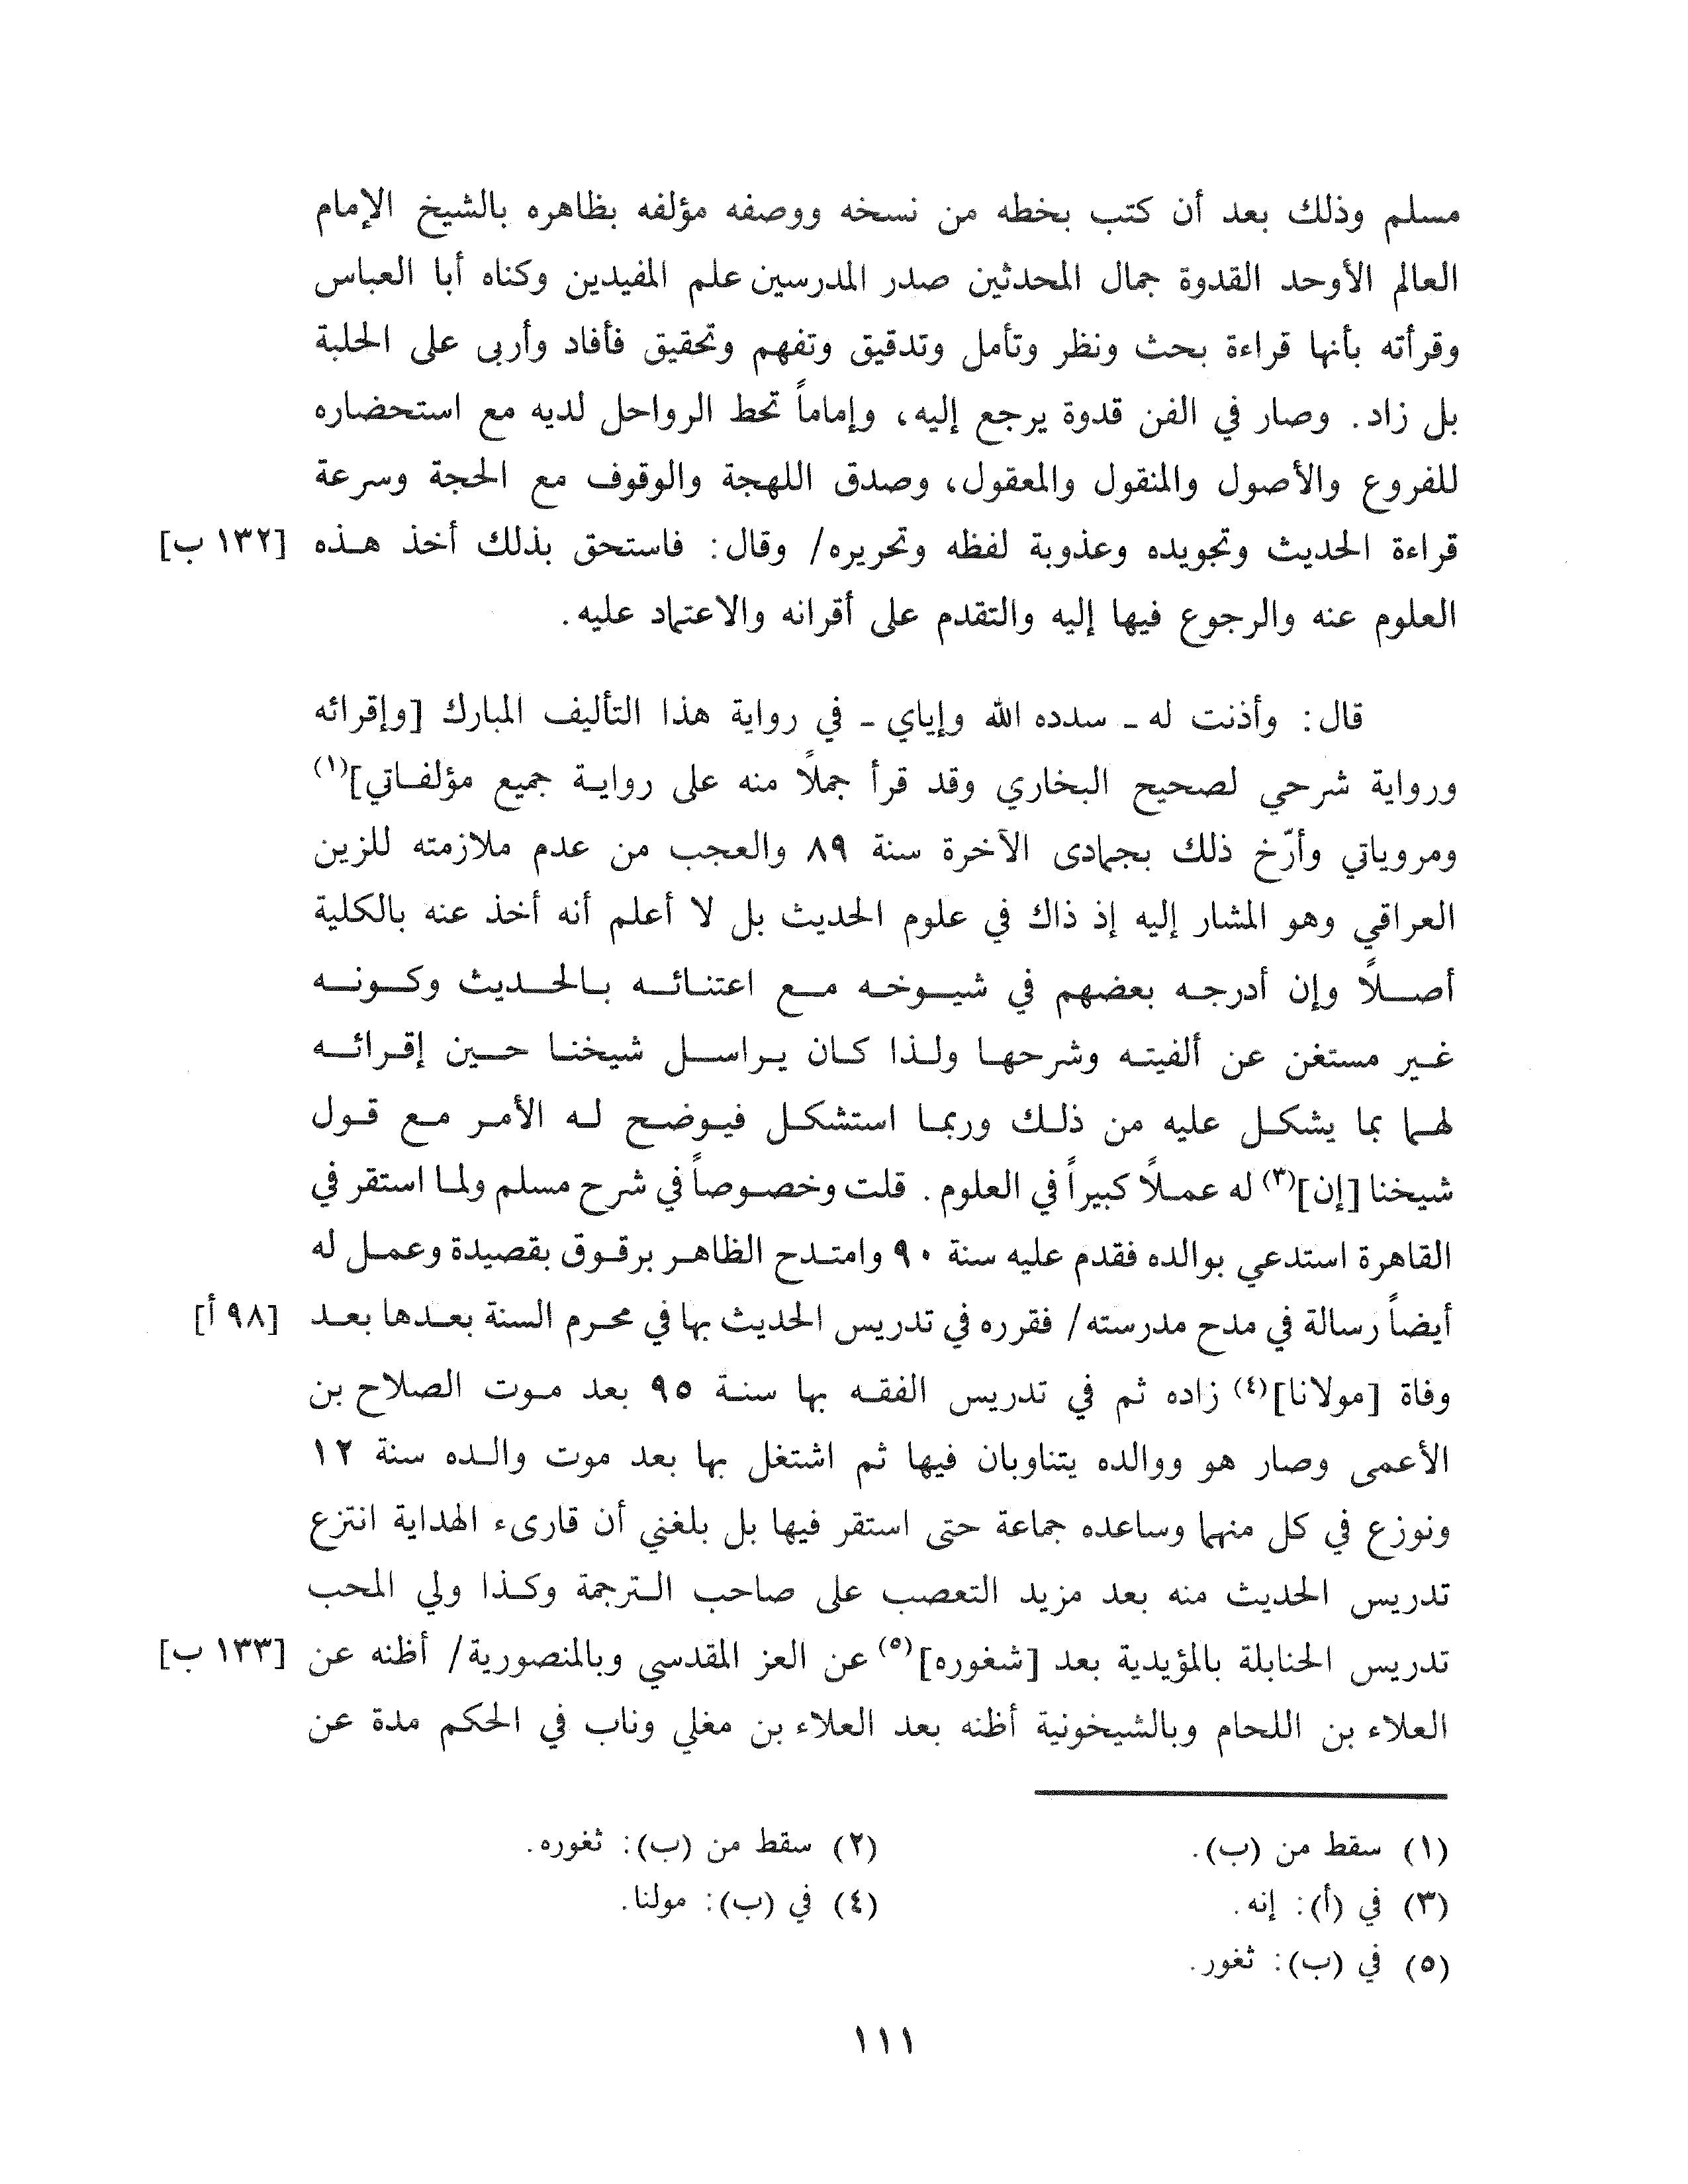 مسلم وذلك بعد أن كتب بخطه من نسخه ووصفه مؤلفه بظاهره بالشيخ الإمام
العالم الأوحد القدوة جمال المحدثين صدر المدرسين علم المفيدين وكناه أبا العباس
وقرأته بأنها قراءة بحث ونظر وتأمل وتدقيق وتفهم وتحقيق فأفاد وأربى على الحلبة
بل زاد. وصار في الفن قدوة يرجع إليه، وإماماً تحط الرواحل لديه مع استحضاره
للفروع والأصول والمنقول والمعقول، وصدق اللهجة والوقوف مع الحجة وسرعة
قراءة الحديث وتجويده وعذوبة لفظه وتحريره/ وقال: فاستحق بذلك أخذ هذه [١٣٢ ب]
العلوم عنه والرجوع فيها إليه والتقدم على أقرانه والاعتماد عليه.
قال: وأذنت له ـ سدده الله وإياي ـ في رواية هذا التأليف المبارك [وإقرائه
ورواية شرحي لصحيح البخاري وقد قرأ جملاً منه على رواية جميع مؤلفاتي](١)
ومروياتي وأرّخ ذلك بجمادى الآخرة سنة ٨٩ والعجب من عدم ملازمته للزين
العراقي وهو المشار إليه إذ ذاك في علوم الحديث بل لا أعلم أنه أخذ عنه بالكلية
أصلاً وإن أدرجه بعضهم في شيوخه مع اعتنائه بالحديث وكونه
غير مستغن عن ألفيته وشرحها ولذا كان يراسل شيخنا حين إقرائه
لهما بما يشكل عليه من ذلك وربما استشكل فيوضح له الأمر مع قول
شيخنا [إن](٣) له عملاً كبيراً في العلوم. قلت وخصوصاً في شرح مسلم ولما استقر في
القاهرة استدعي بوالده فقدم عليه سنة ٩٠ وامتدح الظاهر برقوق بقصيدة وعمل له
أيضاً رسالة في مدح مدرسته/ فقرره في تدريس الحديث بها في محرم السنة بعدها بعد [٩٨ أ]
وفاة [مولانا](٤) زاده ثم في تدريس الفقه بها سنة ٩٥ بعد موت الصلاح بن
الأعمى وصار هو ووالده يتناوبان فيها ثم اشتغل بها بعد موت والده سنة ١٢
ونوزع في كل منهما وساعده جماعة حتى استقر فيها بل بلغني أن قارىء الهداية انتزع
تدريس الحديث منه بعد مزيد التعصب على صاحب الترجمة وكذا ولي المحب
تدريس الحنابلة بالمؤيدية بعد [شغوره](٥) عن العز المقدسي وبالمنصورية/ أظنه عن [١٣٣ ب]
العلاء بن اللحام وبالشيخونية أظنه بعد العلاء بن مغلي وناب في الحكم مدة عن
(١) سقط من (ب). (٢) سقط من (ب): ثغوره.
(٣) في (أ): إنه. (٤) في (ب): مولنا.
(٥) في (ب): ثغور.
١١١